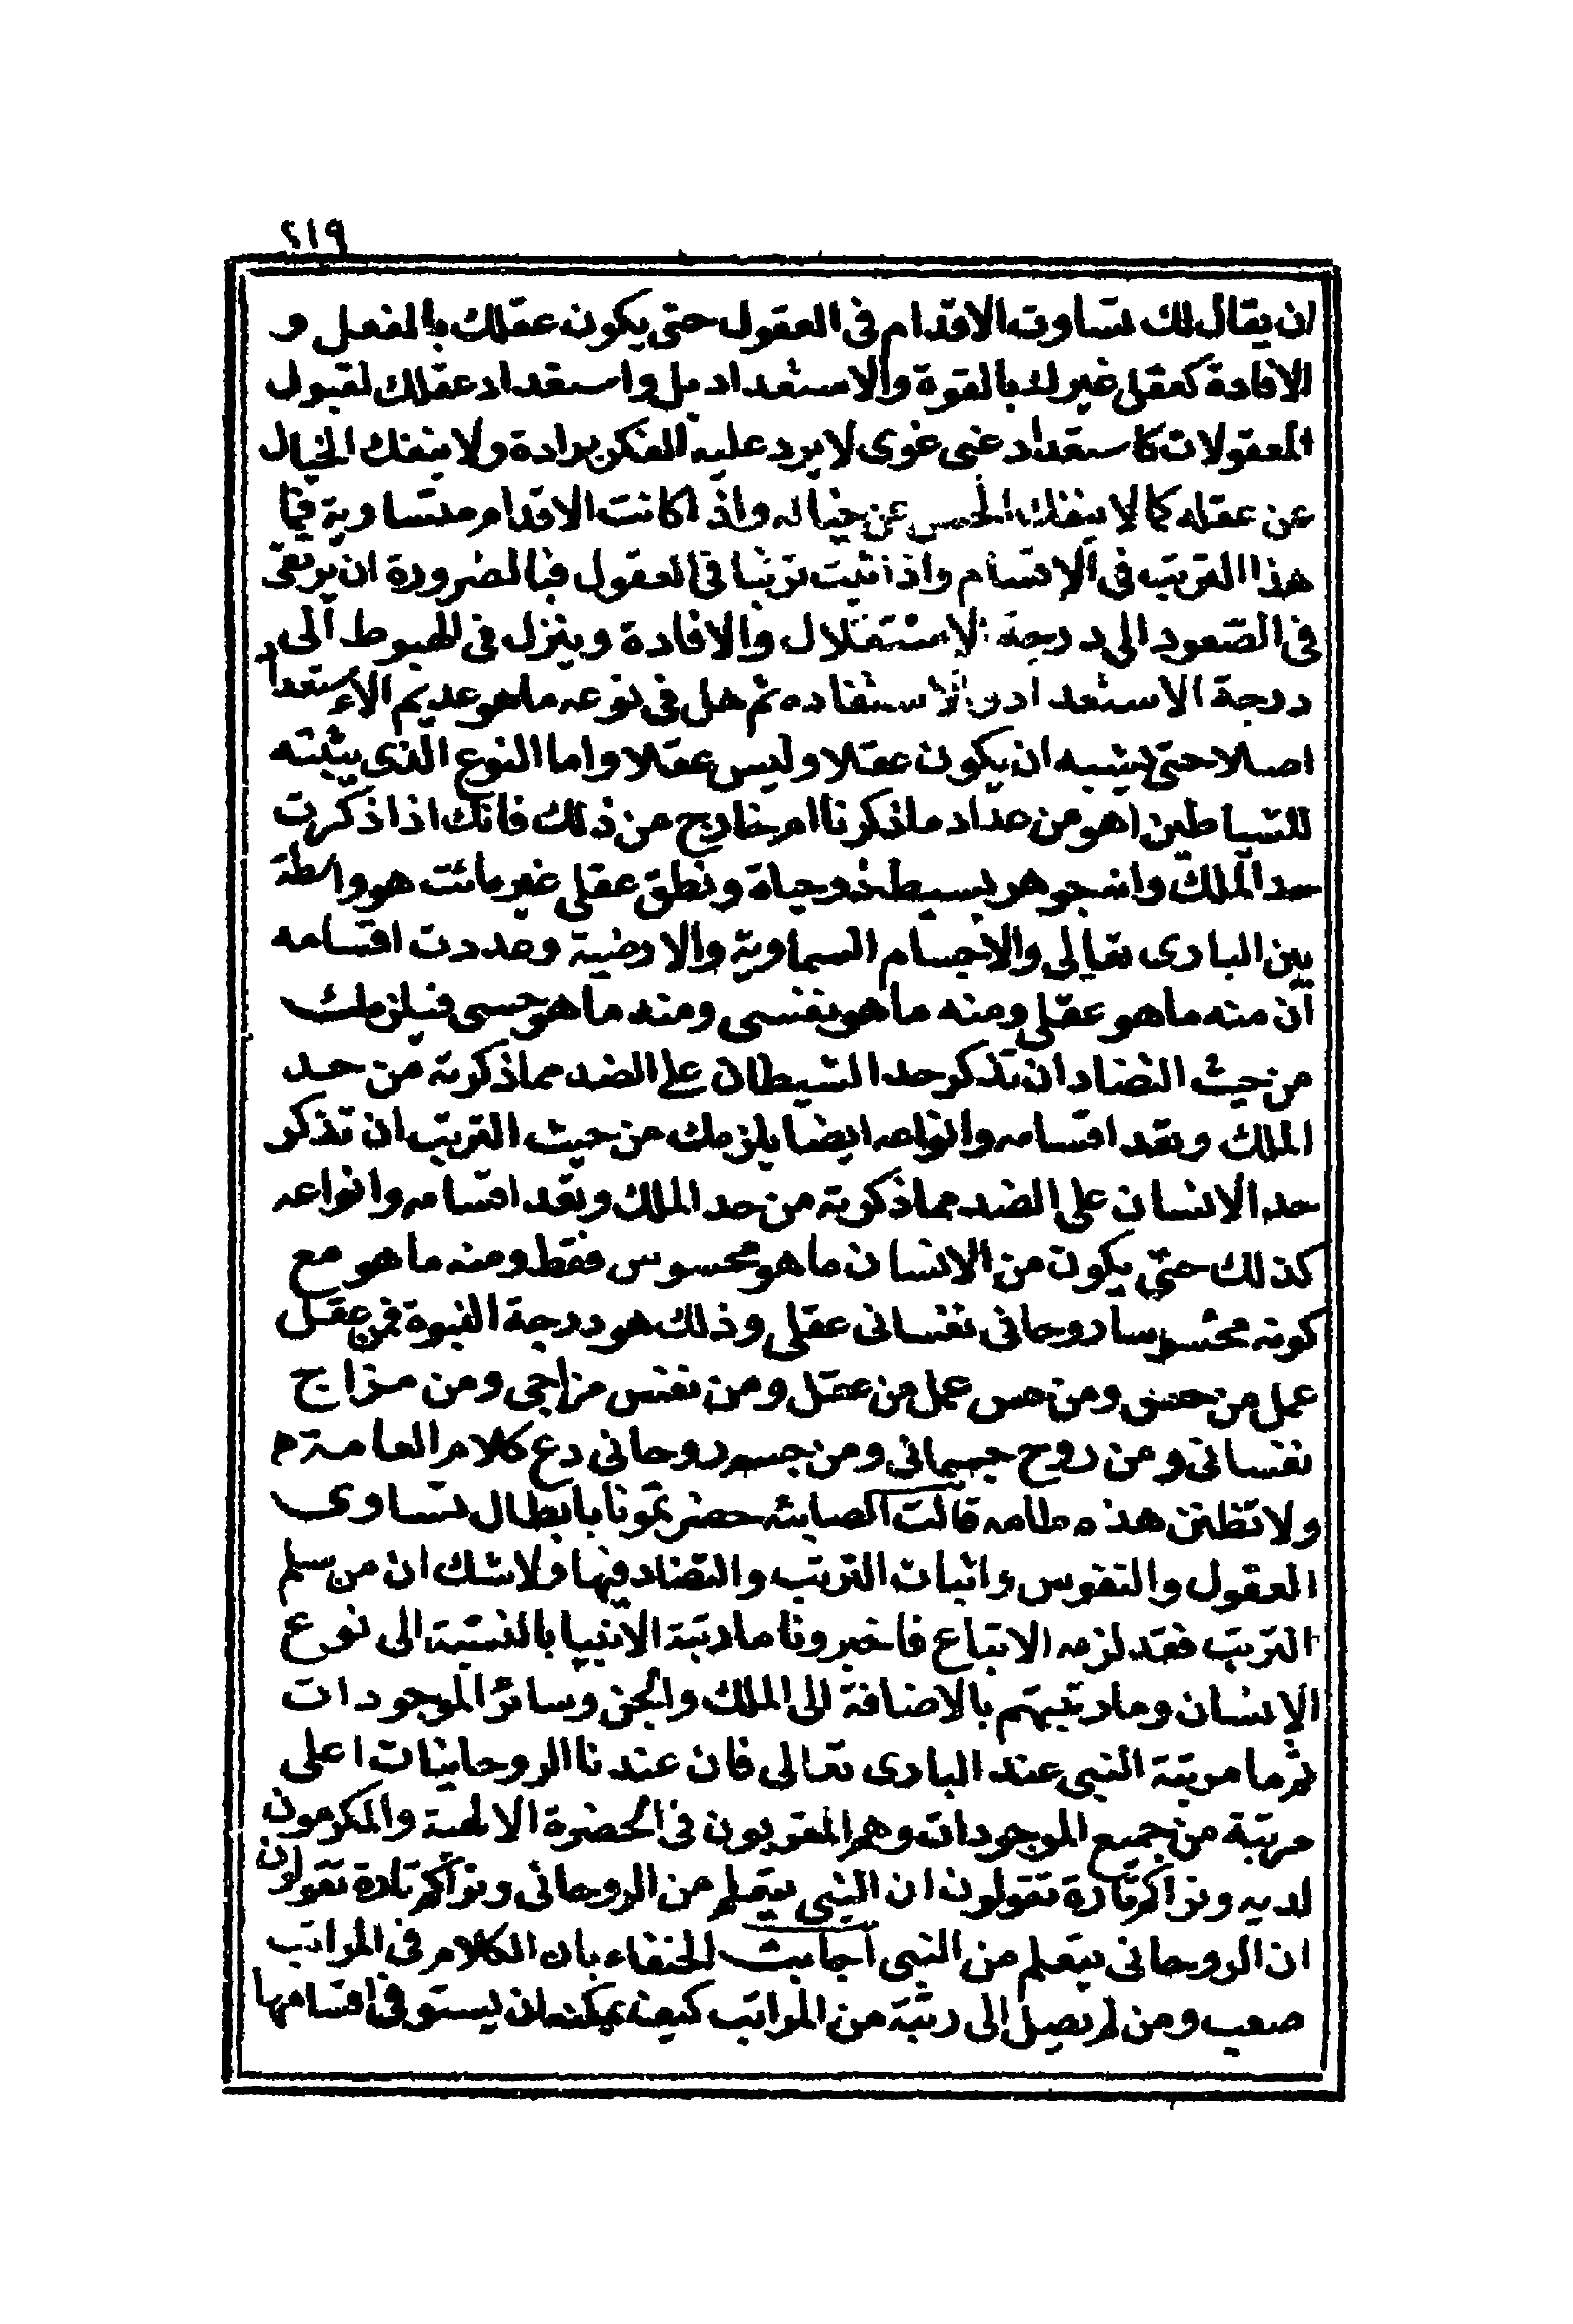 ٢١٩
ان يقال لك تساوت الاقدام فى العقول حتى يكون عقلك بالفعل و
الافادة كعقل غيرك بالقوة والاستعداد بل واستعداد عقلك لقبول
المعقولات كاستعداد غبى غوى لا يرد عليه الفكر برادة ولا ينفك الخيال
عن عقله كما لا ينفك الحس عن خياله واذا كانت الاقدام متساوية فما
هذا الترتب فى الاقسام واذا ثبت ترتبا فى العقول فبالضرورة ان يرتقى
فى الصعود الى درجة الاستقلال والافادة وينزل فى الهبوط الى
درجة الاستعداد والاستفاده ثم هل فى نوعه ما هو عديم الاستعداد
اصلا حتى يشبه ان يكون عقلا وليس عقلا واما النوع الذى يثبته
للشياطين اهو من عداد ما ذكرنا ام خارج من ذلك فانك اذا ذكرت
حد الملك وانه جوهر بسيط ذو حياة ونطق عقلى غير مائت هو واسطة
بين البارى تعالى والاجسام السماوية والارضية وعددت اقسامه
ان منه ما هو عقلى ومنه ما هو نفسى ومنه ما هو حسى فيلزمك
من حيث التضاد ان تذكر حد الشيطان على الضد مما ذكرته من حد
الملك وتعد اقسامه وانواعه ايضا يلزمك من حيث الترتب ان تذكر
حد الانسان على الضد مما ذكرته من حد الملك وتعد اقسامه وانواعه
كذلك حتى يكون من الانسان ما هو محسوس فقط ومنه ما هو مع
كونه محسوسا روحانى نفسانى عقلى وذلك هو درجة النبوة فمن عقل
عمل من حس ومن حس عمل من عقل ومن نفس مزاجى ومن مزاج
نفسانى ومن روح جسمانى ومن جسم روحانى دع كلام العامة م
ولا تظنن هذه طامه قالت الصابئه حصرتمونا بابطال تساوى
العقول والنفوس واثبات الترتب والتضاد فيها ولا شك ان من سلم
الترتب فقد لزمه الاتباع فاخبرونا ما رتبة الانبيا بالنسبة الى نوع
الانسان وما رتبتهم بالاضافة الى الملك والجن وسائر الموجودات
ثم ما مرتبة النبى عند البارى تعالى فان عندنا الروحانيات اعلى
مرتبة من جميع الموجودات وهم المقربون فى الحضرة الالهية والمكرمون
لديه ونراكم تارة تقولون ان النبى يتعلم من الروحانى ونراكم تارة تقولون
ان الروحانى يتعلم من النبى اجابت الحنفاء بان الكلام فى المراتب
صعب ومن لم يصل الى رتبة من المراتب كيف يمكنه ان يستوفى اقسامها